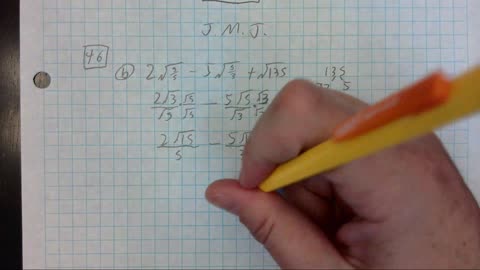 J. M. J.
46
b 2√(3/5) - 5√(5/3) + √135 135
2√3/√5 √5/√5 - 5√5/√3 √3/√3 5
2√15/5 - 5√